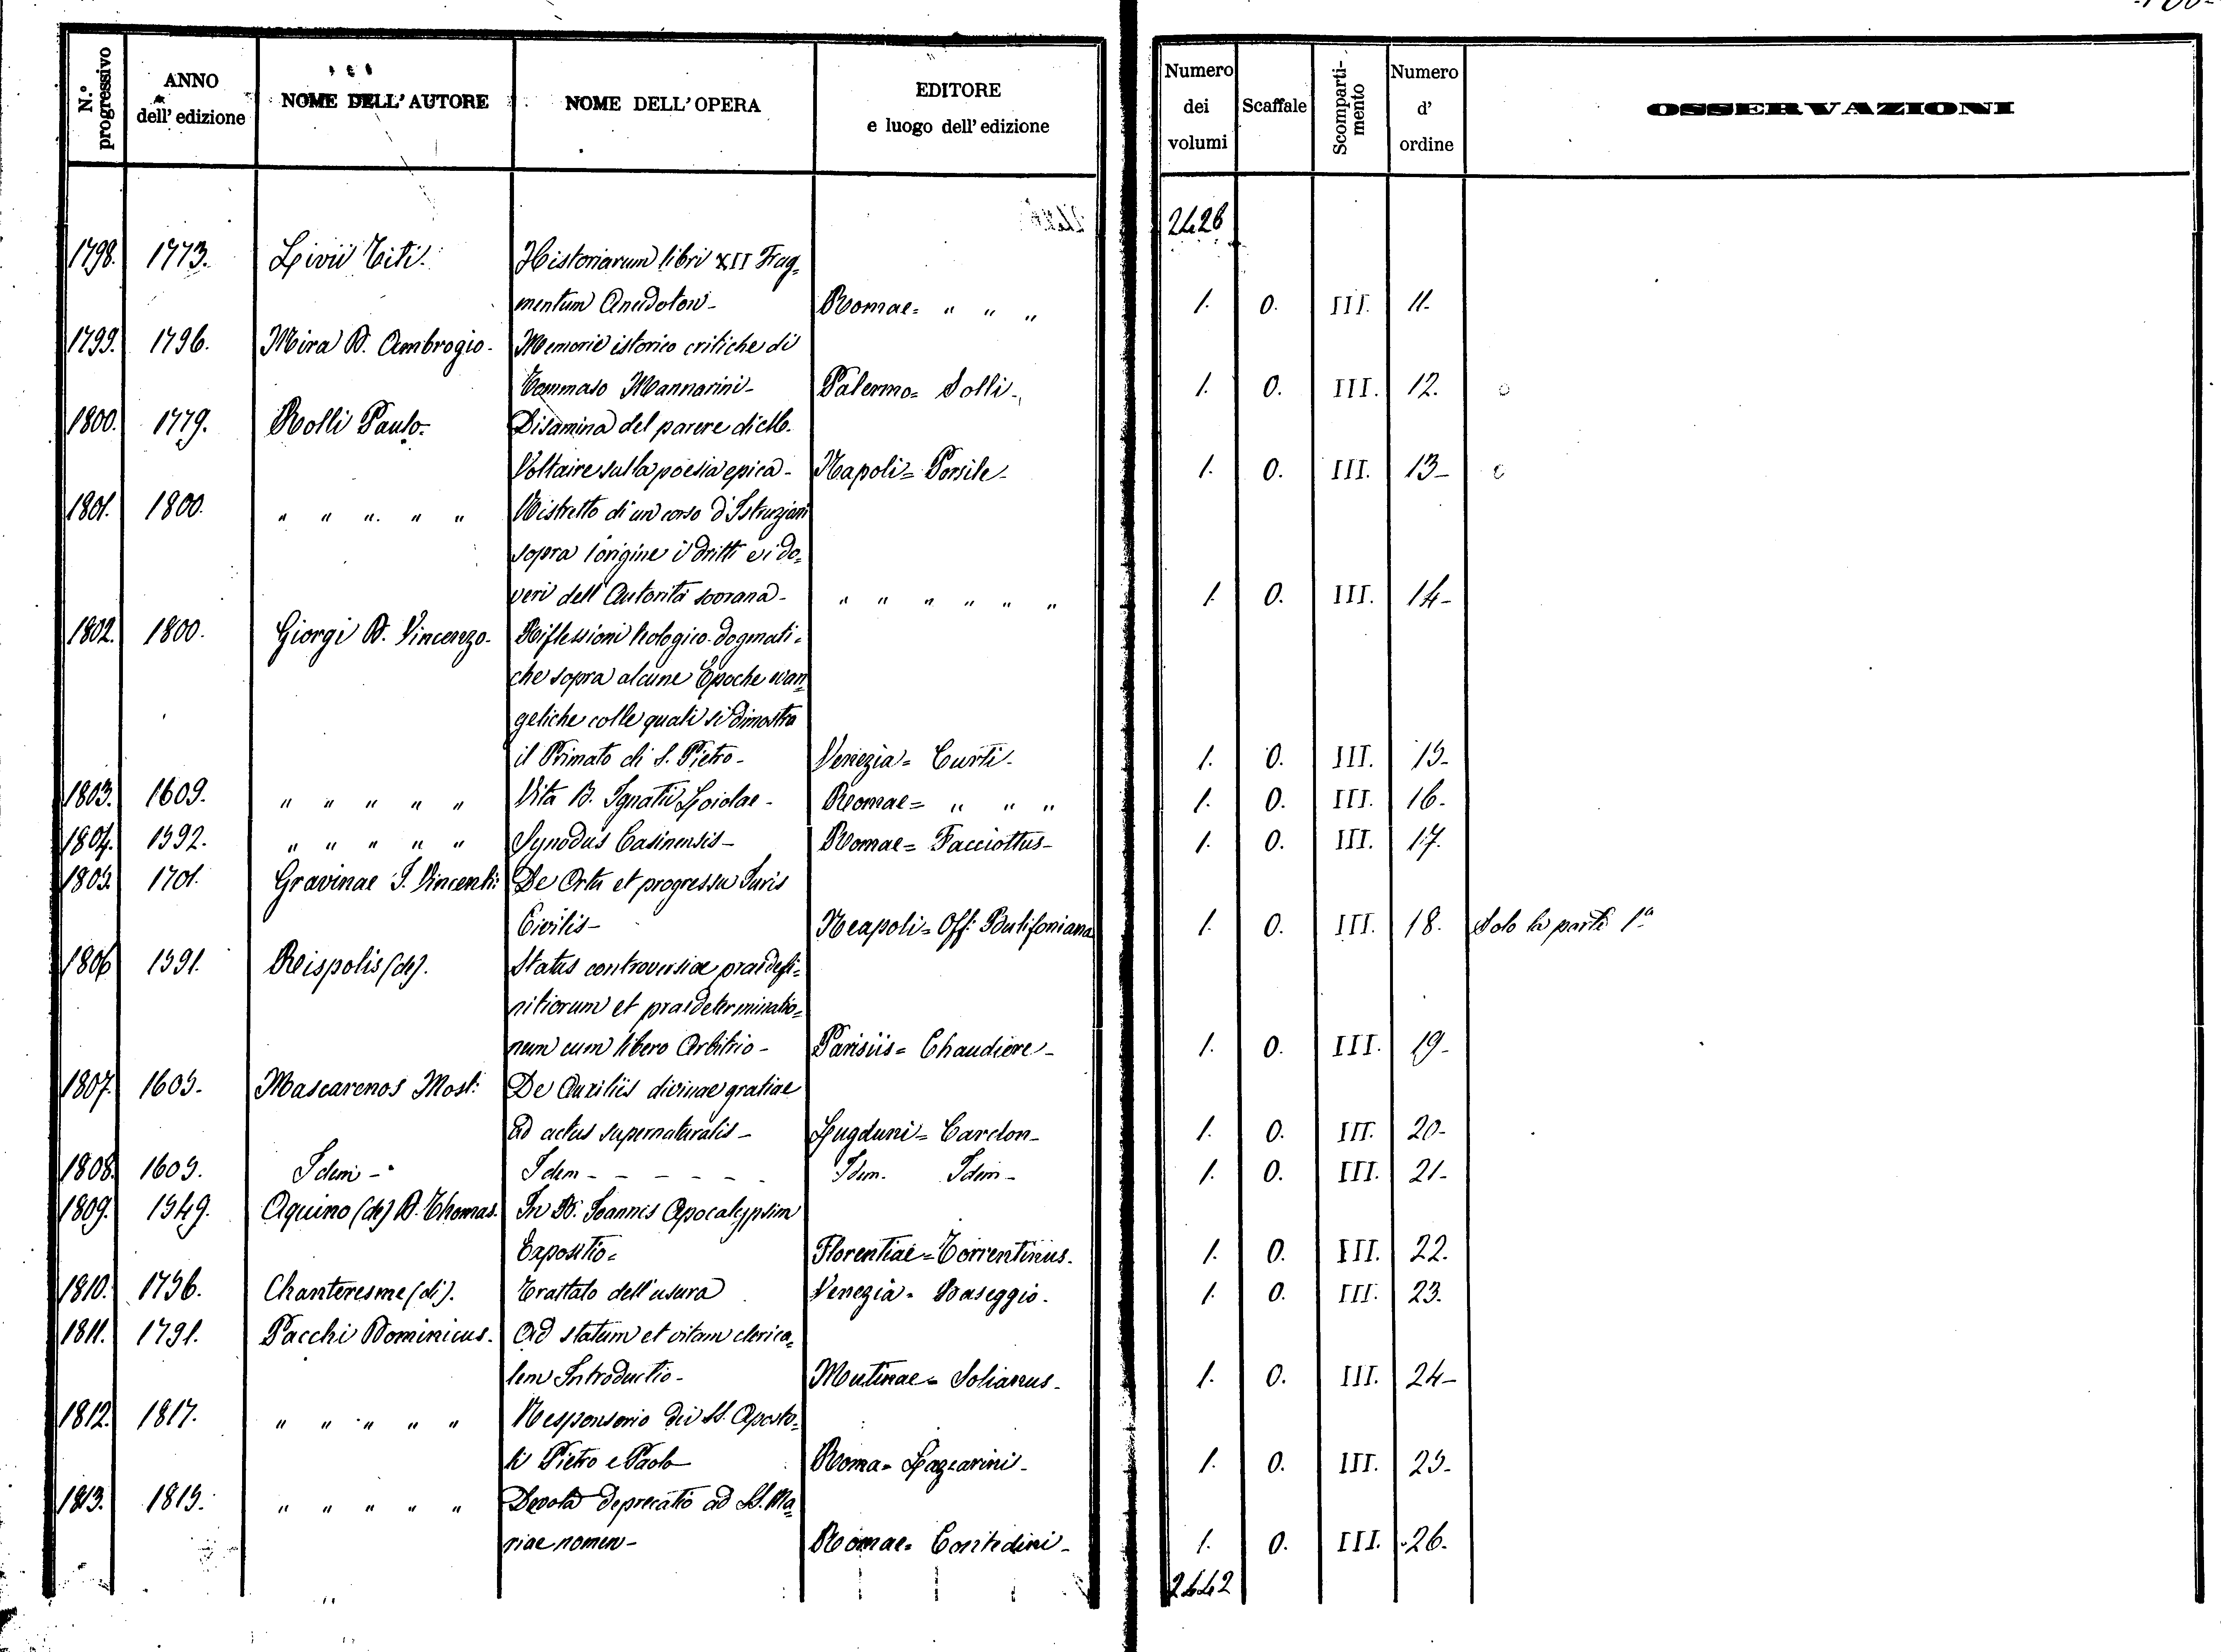 N.° progressivo ANNO dell' edizione NOME DELL' AUTORE NOME DELL' OPERA EDITORE e luogo dell' edizione Numero dei volumi Scaffale Scomparti-mento Numero d' ordine OSSERVAZIONI
2426
1798. 1773. Livii Titi. Historiarum libri XII Frag=
mentum Anecdoton - Romae = " " " 1. O. III. 11-
1799. 1796. Mira D. Ambrogio - Memorie istorico critiche di
Tommaso Mannarini - Palermo = Solli - 1. O. III. 12.
1800. 1779. Rolli Paulo - Disamina del parere di M.
Voltaire sulla poesia epica - Napoli = Porsile - 1. O. III. 13-
1801. 1800. " " " " " Ristretto di un corso d'Istruzioni
sopra l'origine i dritti e i do=
veri dell'Autorità sovrana - " " " " " " 1. O. III. 14-
1802. 1800. Giorgi D. Vincenzo - Riflessioni teologico-dogmati=
che sopra alcune Epoche evan=
geliche colle quali si dimostra
il Primato di S. Pietro - Venezia = Curti - 1. O. III. 15-
1803. 1609. " " " " " Vita B. Ignatii Loiolae - Romae = " " " 1. O. III. 16-
1804. 1592. " " " " " Synodus Casinensis - Romae = Facciottus - 1. O. III. 17.
1805. 1701. Gravinae J. Vincenti: De Ortu et progressu Juris
Civilis - Neapoli = Off: Bulifoniana 1. O. III. 18. Solo la parte 1ª
1806 1591. Reispolis (de). Status controversiae praedefi=
nitiorum et praedeterminatio=
num cum libero Arbitrio - Parisiis = Chaudiere - 1. O. III. 19-
1807. 1605. Mascarenos Most: De Auxiliis divinae gratiae
ad actus supernaturalis - Lugduni = Cardon - 1. O. III. 20-
1808. 1605. Idem - Idem - - - - - - Idem. Idem - 1. O. III. 21-
1809. 1549. Aquino (de) D. Thomas. In D. Joannis Apocalypsim
Expositio = Florentiae = Torrentinus. 1. O. III. 22.
1810. 1756. Chanteresme (di). Trattato dell'usura Venezia = Baseggio. 1. O. III. 23.
1811. 1791. Pacchi Dominicus. Ad statum et vitam clerica=
lem Introductio - Mutinae = Solianus - 1. O. III. 24-
1812. 1817. " " " " " Responsorio dei SS. Aposto=
li Pietro e Paolo - Roma = Lazzarini - 1. O. III. 25-
1813. 1815. " " " " " Devota deprecatio ad SS. Ma=
riae nomen - Romae = Contedini - 1. O. III. 26-
2442